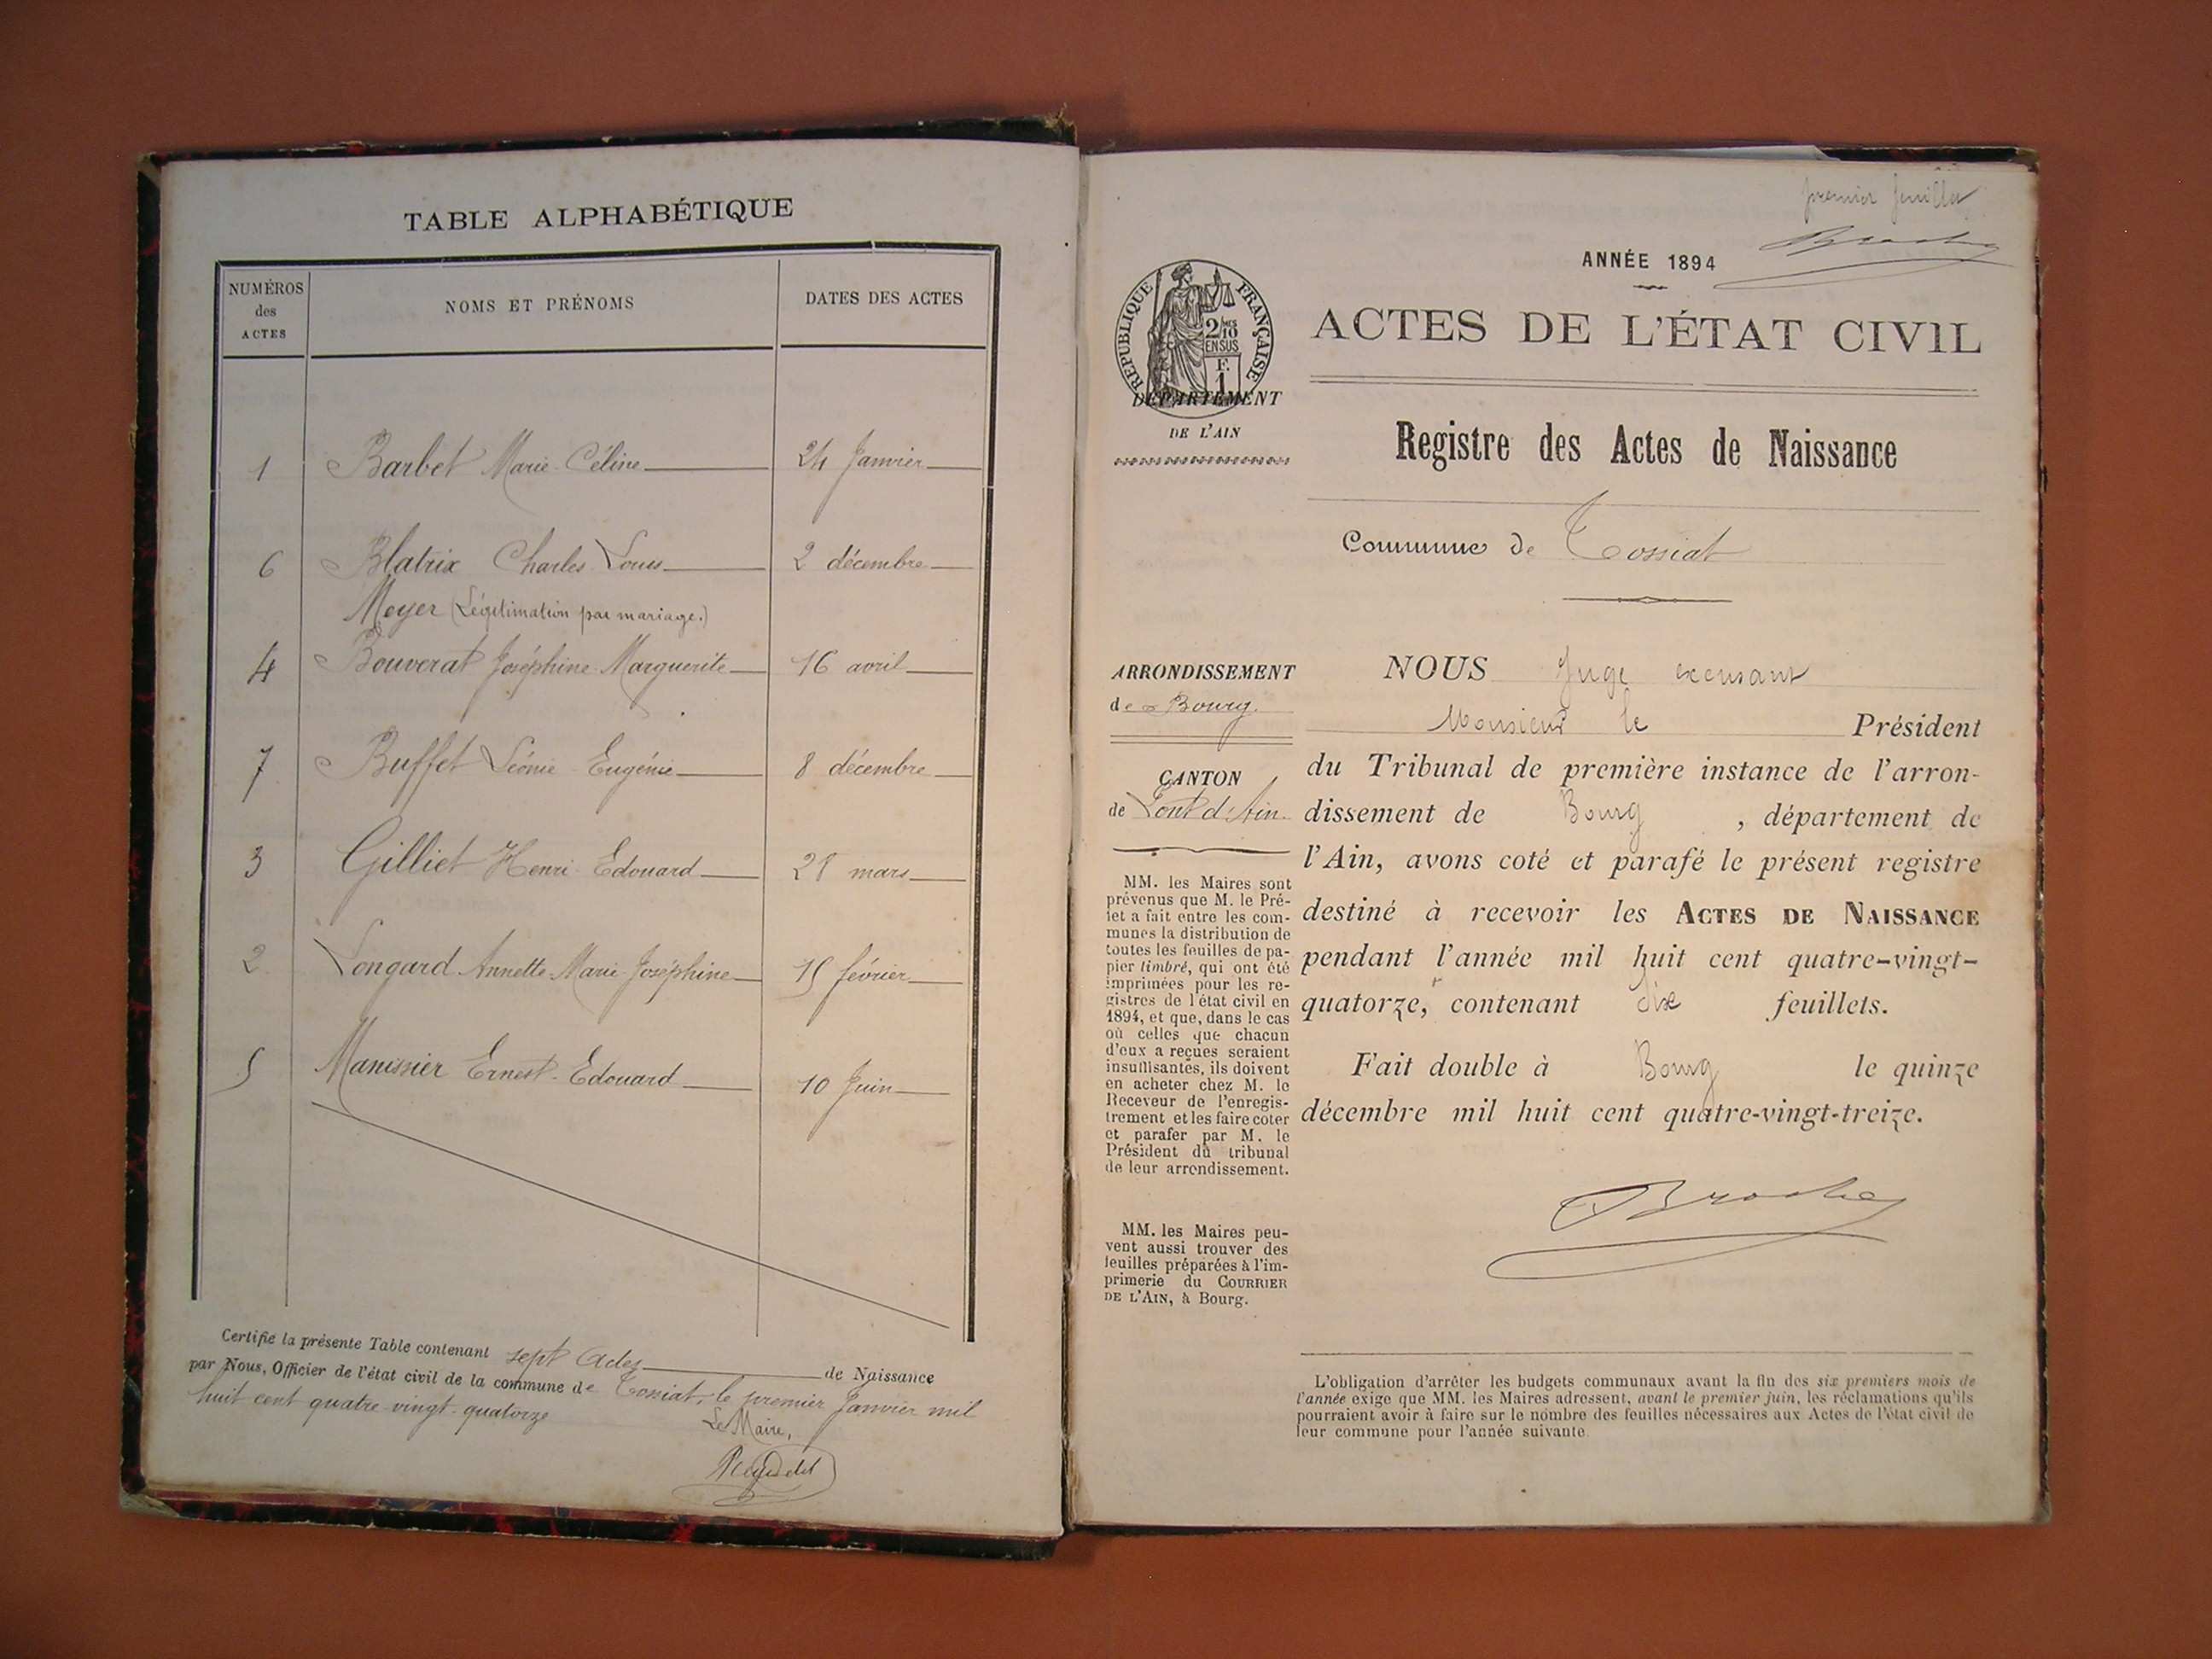 TABLE ALPHABÉTIQUE
NUMÉROS
des
ACTES
NOMS ET PRÉNOMS
DATES DES ACTES
1 Barbet Marie-Céline 24 Janvier
6 Blatrix Charles Louis 2 décembre
Moyer (Légitimation par mariage.)
4 Bouverat Joséphine Marguerite 16 avril
7 Buffet Léonie Eugénie 8 décembre
3 Gilliet Henri Edouard 28 mars
2 Longard Annette Marie Joséphine 15 février
5 Manissier Ernest Edouard 10 Juin
Certifie la présente Table contenant sept Actes de Naissance
par Nous, Officier de l'état civil de la commune de Tossiat, le premier Janvier mil
huit cent quatre-vingt-quatorze
Le Maire,
premier feuillet
ANNÉE 1894
RÉPUBLIQUE FRANÇAISE
2/10 MES
EN SUS
F.
1
DÉPARTEMENT
DE L'AIN
ACTES DE L'ÉTAT CIVIL
Registre des Actes de Naissance
Commune de Tossiat
ARRONDISSEMENT
de Bourg.
CANTON
de Pont d'Ain.
MM. les Maires sont
prévenus que M. le Pré-
fet a fait entre les com-
munes la distribution de
toutes les feuilles de pa-
pier timbré, qui ont été
imprimées pour les re-
gistres de l'état civil en
1894, et que, dans le cas
où celles que chacun
d'eux a reçues seraient
insuffisantes, ils doivent
en acheter chez M. le
Receveur de l'enregis-
trement et les faire coter
et parafer par M. le
Président du tribunal
de leur arrondissement.
MM. les Maires peu-
vent aussi trouver des
feuilles préparées à l'im-
primerie du COURRIER
DE L'AIN, à Bourg.
NOUS Juge excusant
Monsieur le Président
du Tribunal de première instance de l'arron-
dissement de Bourg, département de
l'Ain, avons coté et parafé le présent registre
destiné à recevoir les ACTES DE NAISSANCE
pendant l'année mil huit cent quatre-vingt-
quatorze, contenant dix feuillets.
Fait double à Bourg le quinze
décembre mil huit cent quatre-vingt-treize.
L'obligation d'arrêter les budgets communaux avant la fin des six premiers mois de
l'année exige que MM. les Maires adressent, avant le premier juin, les réclamations qu'ils
pourraient avoir à faire sur le nombre des feuilles nécessaires aux Actes de l'état civil de
leur commune pour l'année suivante.